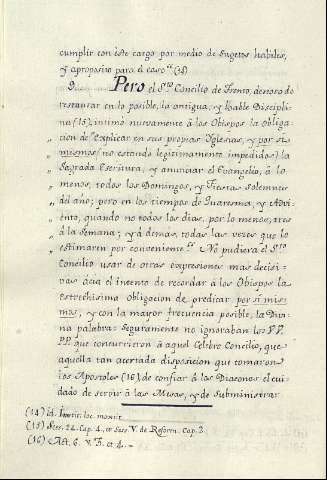 cumplir con este cargo por medio de Sugetos habiles,
y aproposito para el caso (14)
9. Pero el Sto Concilio de Trento, deseoso de
restaurar en lo posible, la antigua, y loable Disciplina
(15), intimó nuevamente à los Obispos la obliga-
cion de Explicar en sus propias Iglesias, y por si
" mismos (no estando legitimamente impedidos) la
" Sagrada Escritura, y anunciar el Evangelio, à lo
" menos, todos los Domingos, y Fiestas solemnes
" del año; pero en los tiempos de Quaresma, y Advi-
" ento, quando no todos los dias, por lo menos, tres
" à la Semana; y à demas, todas las veces que lo
" estimaren por conveniente. No pudiera el Sto
Concilio usar de otras expresiones mas decisi-
vas àcia el intento de recordar à los Obispos la
estrechisima Obligacion de predicar por si mis-
mos, y con la mayor frecuencia posible, la Divi-
na palabra. Seguramente no ignoraban los VV.
PP. que concurrieron à aquel Celebre Concilio, que
aquella tan acertada disposicion que tomaron
los Apostoles (16) de confiar à las Diaconos el cui-
dado de servir à las Mesas, y de subministrar
(14) id. loc.
(15) Sess. 24. Cap. 4. et Sess. V. de Reform. Cap. 2.
(16) Act. 6. v. 2. et 4.